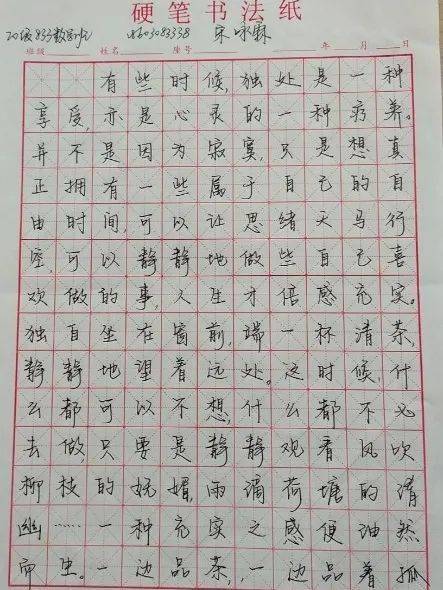 硬笔书法纸
20级833数学 2003083338 宋咏霖
班级 姓名 座号 年 月 日
有些时候,独处是一种
享受,亦是心灵的一种疗养。
并不是因为寂寞,只是想真
正拥有一些属于自己的自
由时间,可以让思绪天马行
空,可以静静地做些自己喜
欢做的事,人生才倍感充实。
独自坐在窗前,端一杯清茶,
静静地望着远处。这时候,什
么都可以不想,什么都不必
去做,只要是静静观看风吹
柳枝的妩媚,雨滴荷塘的清
幽……一种充实之感便油然
而生。一边品茶,一边品着孤